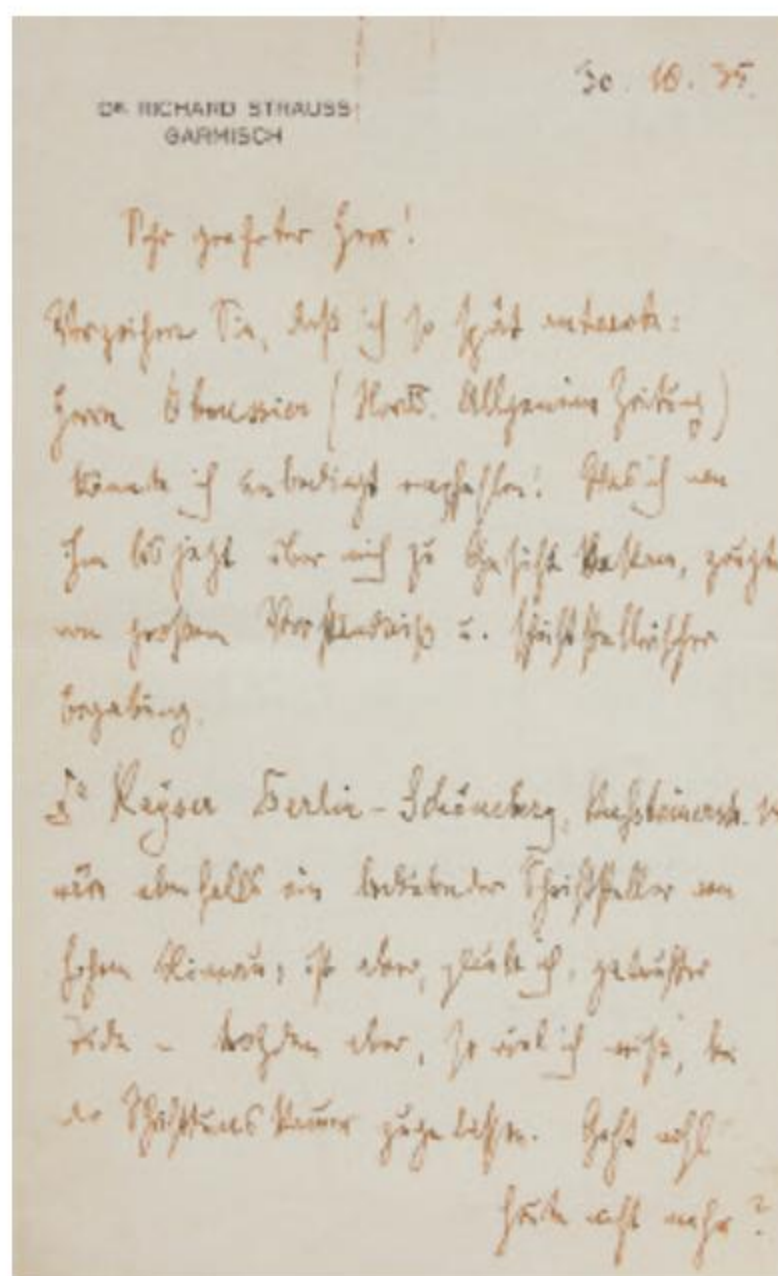 30. 10. 35.
DR. RICHARD STRAUSS
GARMISCH
Sehr geehrter Herr!
Verzeihen Sie, daß ich so spät antworte:
Herrn Oboussier ( Allgemeine Zeitung)
könnte ich unbedingt empfehlen! Was ich von
ihm bis jetzt über mich zu Gesicht bekam, zeugt
von großem Verständniß u. schriftstellerischer
Begabung.
Dr Kayser Berlin-Schöneberg,
wäre ebenfalls ein bedeutender Schriftsteller von
hohem Niveau; ist aber, glaube ich, getaufter
Jude – trotzdem aber, so viel ich weiß, bei
der Schrifttumskammer zugelassen. Geht wohl
heute nicht mehr?